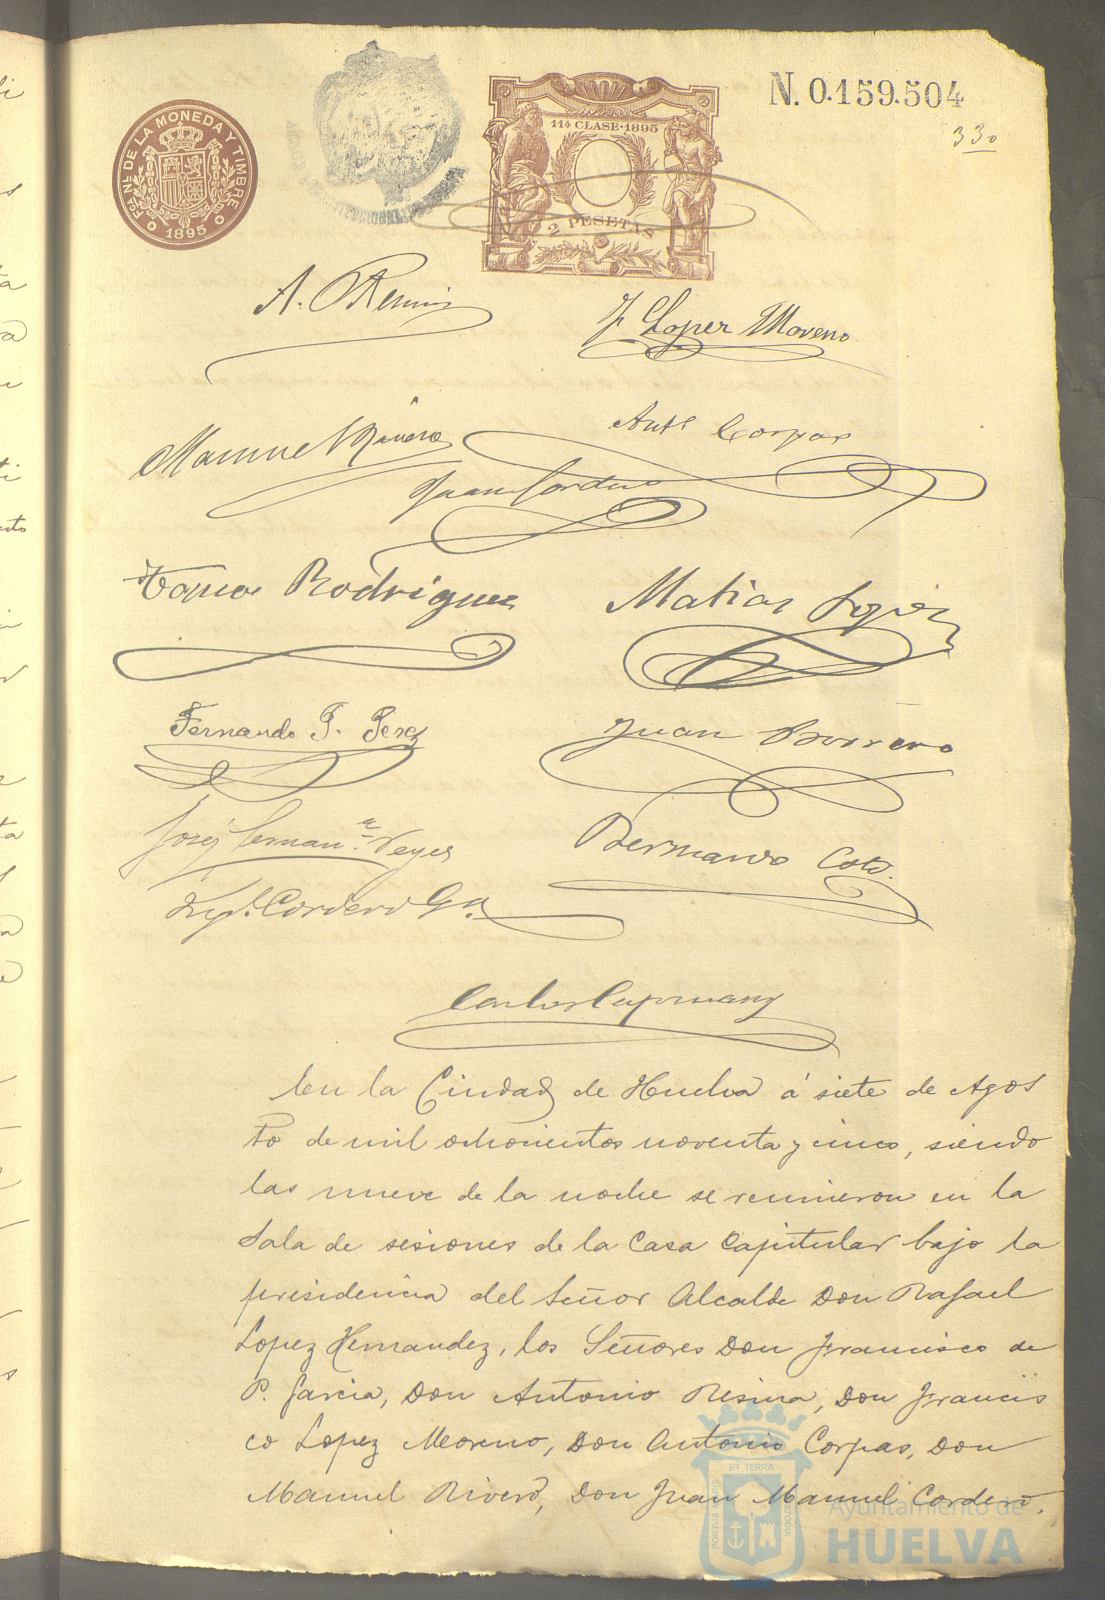 N. 0.159.504
330
FCA. NL. DE LA MONEDA Y TIMBRE
1895
11ª CLASE·1895
2 PESETAS
F Lopez Moreno
Manuel Rivero
Antº Corpas
Juan Cordero
Rodriguez
Matias Lopez
Fernando P. Perez
Juan Borrero
José Hernan
Bernardo Coto
Cordero Ga.
Carlos Capmany
En la Ciudad de Huelva á siete de Agos
to de mil ochocientos noventa y cinco, siendo
las nueve de la noche se reunieron en la
Sala de sesiones de la Casa Capitular bajo la
presidencia del Señor Alcalde Don Rafael
Lopez Hernandez, los Señores Don Francisco de
P. Garcia, Don Antonio Resina, Don Francis
co Lopez Moreno, Don Antonio Corpas, Don
Manuel Rivero, Don Juan Manuel Cordero,
Ayuntamiento de
HUELVA